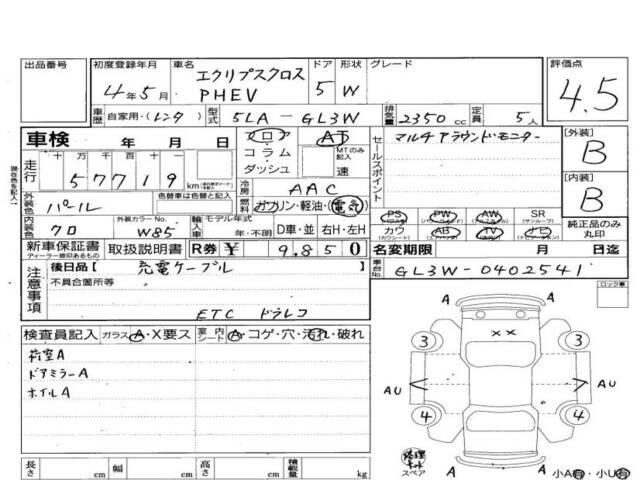 出品番号
初度登録年月 4年5月
車名 エクリプスクロス PHEV
ドア 5
形状 W
グレード
評価点 4.5
車歴 自家用・レンタ
型式 5LA-GL3W
排気量 2350 cc
定員 5人
車検 年 月 日
フロ
コラム
ダッシュ
AT
MTのみ記入
速
セールスポイント
マルチアラウンドモニター
[外装] B
[内装] B
走行 十 万 千 百 十 一
57719 km
現在色を記入
外装色 パール
色替車は色替前色
冷房 AAC
燃料 ガソリン・軽油・電気
内装色 クロ
外装カラーNo. W85
輸入車
モデル年式 年・不明
D車・並 右H・左H
PS (パワステ) PW AW SR (サンルーフ)
カワ (カワシート) AB TV ナビ
純正品のみ丸印
新車保証書
ディーラー捺印あるもの
取扱説明書
R券 ¥ 9.850
名変期限 月 日迄
車台No. GL3W-0402541
注意事項
後日品【 充電ケーブル
不具合箇所等
ETC ドラレコ
ロック車
検査員記入 ガラス A・X要ス
室内シート A・コゲ・穴・汚れ・破れ
荷室A
ドアミラーA
ホイルA
A A
3 3
××
AU AU
4 4
A A
修理キット
スペア
小A有・小U有
長さ cm 幅 cm 高さ cm 積載量 kg